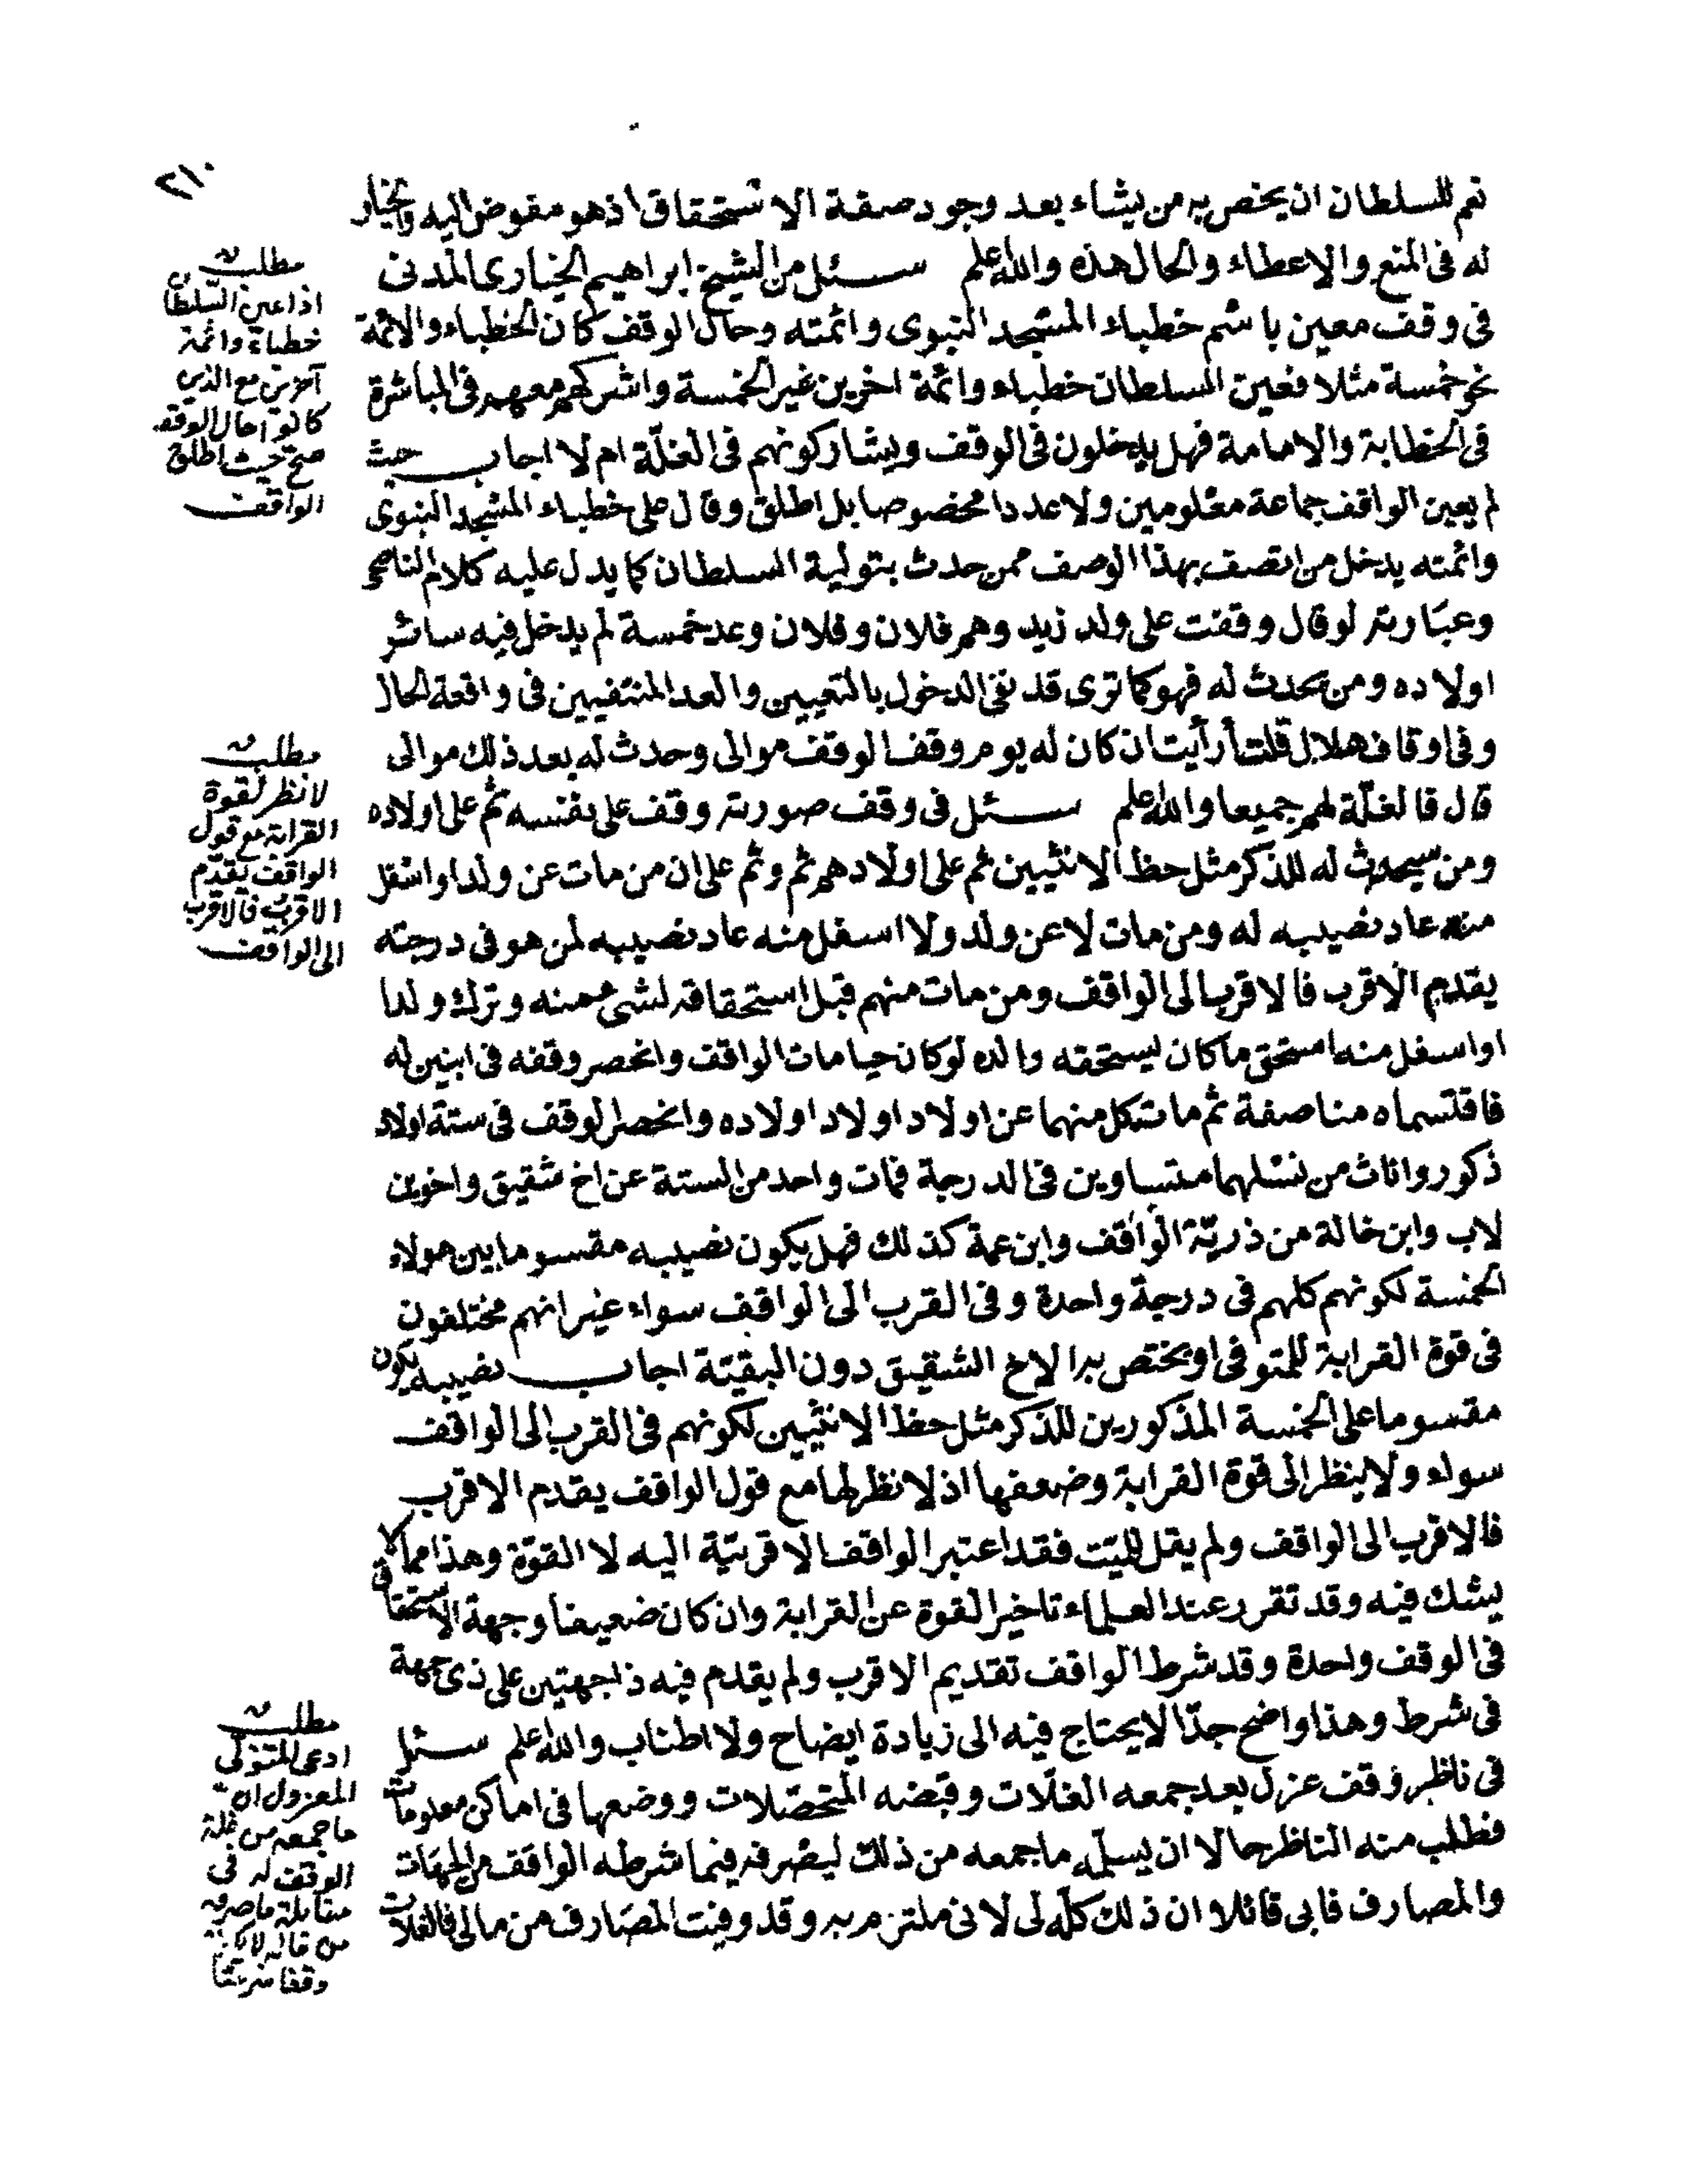 ٢١٠
نعم للسلطان ان يخص به من يشاء بعد وجود صفة الاستحقاق اذ هو مفوض اليه والخيار
له فى المنع والاعطاء والحال هذه والله اعلم سئل من الشيخ ابراهيم الخيارى المدنى
فى وقف معين باسم خطباء المسجد النبوى وائمته وحال الوقف كان الخطباء والائمة
نحو خمسة مثلا فعين السلطان خطباء وائمة اخرين غير الخمسة واشركهم معهم فى المباشرة
فى الخطابة والامامة فهل يدخلون فى الوقف ويشاركونهم فى الغلّة ام لا اجاب حيث
لم يعين الواقف جماعة معلومين ولا عددا مخصوصا بل اطلق وقال على خطباء المسجد النبوى
وائمته يدخل من اتصف بهذا الوصف ممن حدث بتولية السلطان كما يدل عليه كلام الناصحى
وعبارته لو قال وقفت على ولد زيد وهم فلان وفلان وعد خمسة لم يدخل فيه سائر
اولاده ومن يحدث له فهو كما ترى قد نفى الدخول بالتعيين والعد المنتفيين فى واقعة الحال
وفى اوقاف هلال قلت أرأيت ان كان له يوم وقف الوقف موالى وحدث له بعد ذلك موالى
قال فالغلّة لهم جميعا والله اعلم سئل فى وقف صورته وقف على نفسه ثم على اولاده
ومن سيحدث له للذكر مثل حظ الانثيين ثم على اولادهم ثم وثم على ان من مات عن ولد او اسفل
منه عاد نصيبه له ومن مات لا عن ولد ولا اسفل منه عاد نصيبه لمن هو فى درجته
يقدم الاقرب فالاقرب الى الواقف ومن مات منهم قبل استحقاقه لشىء منه وترك ولدا
او اسفل منه استحق ما كان يستحقه والده لو كان حيا مات الواقف وانحصر وقفه فى ابنين له
فاقتسماه مناصفة ثم مات كل منهما عن اولاد اولاد اولاده وانحصر الوقف فى ستة اولاد
ذكور واناث من نسلهما متساوين فى الدرجة فمات واحد من الستة عن اخ شقيق واخوين
لاب وابن خالة من ذريّة الواقف وابن عمة كذلك فهل يكون نصيبه مقسوما بين هولاء
الخمسة لكونهم كلهم فى درجة واحدة وفى القرب الى الواقف سواء غير انهم مختلفون
فى قوة القرابة للمتوفى او يختص به الاخ الشقيق دون البقيّة اجاب نصيبه يكون
مقسوما على الخمسة المذكورين للذكر مثل حظ الانثيين لكونهم فى القرب الى الواقف
سواء ولا ينظر الى قوة القرابة وضعفها اذ لا نظر لها مع قول الواقف يقدم الاقرب
فالاقرب الى الواقف ولم يقل للميّت فقد اعتبر الواقف الاقربيّة اليه لا القوّة وهذا مما لا
يشك فيه وقد تقرر عند العلماء تاخير القوة عن القرابة وان كان ضعيفا وجهة الاستحقاق
فى الوقف واحدة وقد شرط الواقف تقديم الاقرب ولم يقدم فيه ذا جهتين على ذى جهة
فى شرط وهذا واضح جدّا لا يحتاج فيه الى زيادة ايضاح ولا اطناب والله اعلم سئل
فى ناظر وقف عزل بعد جمعه الغلّات وقبضه المتحصّلات ووضعها فى اماكن معلومات
فطلب منه الناظر حالا ان يسلّمه ما جمعه من ذلك ليصرفه فيما شرطه الواقف من الجهات
والمصارف فابى قائلا ان ذلك كلّه لى لانى ملتزم به وقد وفيت المصارف من مالى فالغلات
مطلب
اذا عين السّلطان
خطباء وائمة
آخرين مع الذين
كانوا حال الوقف
صح حيث اطلق
الواقف
مطلب
لا نظر لقوة
القرابة مع قول
الواقف يقدّم
الاقرب فالاقرب
الى الواقف
مطلب
ادعى المتولى
المعزول ان
ما جمعه من غلة
الوقف له فى
مقابلة ما صرفه
من ماله
وقفا